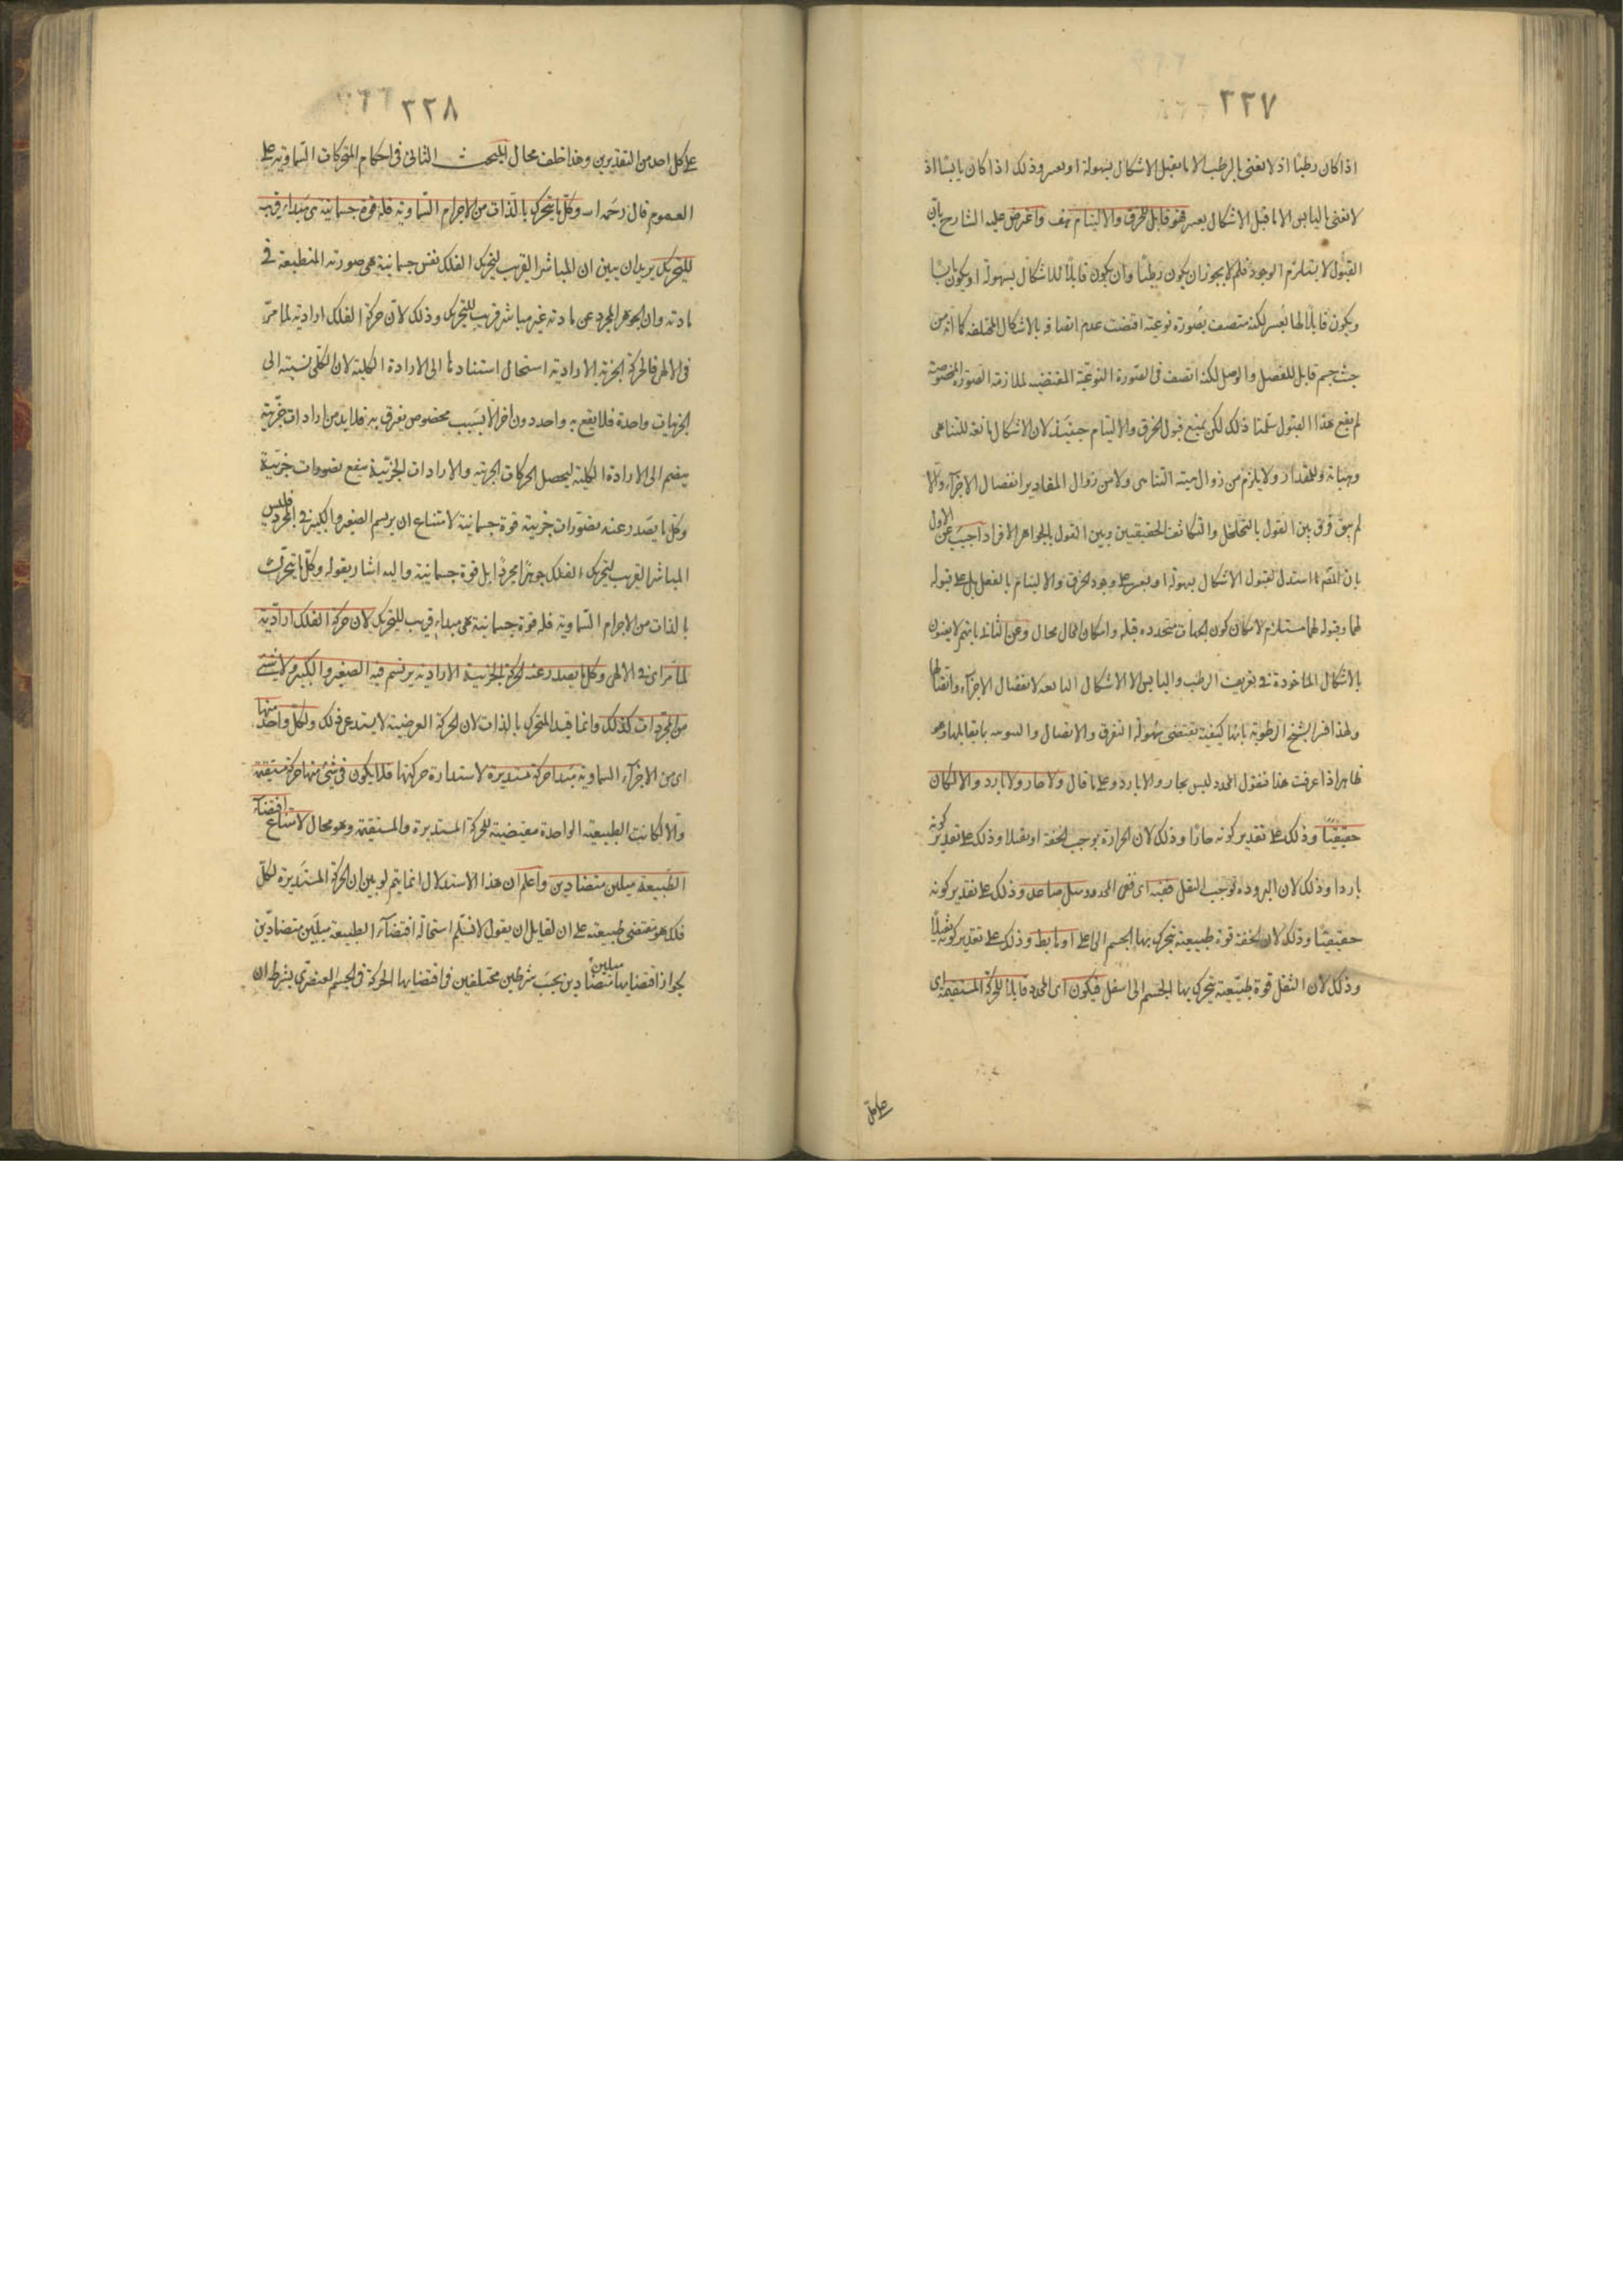 ٢٢٧
اذا كان رطبًا اذ لا نعنى بالرطب الا ما يقبل الاشكال بسهولة او بعسر وذلك اذا كان يابسًا اذ
لا نعنى باليابس الا ما قبل الاشكال بعسر فهو قابل للخرق والالتيام هف واعترض عليه الشارح بان
القبول لا يستلزم الوجود فلم لا يجوز ان يكون رطبًا وان يكون قابلًا للاشكال بسهولة او يكون يابسًا
ويكون قابلًا لها بعسر لكنه متصف بصورة نوعية اقتضت عدم اتصافه بالاشكال المختلفة كما انه من
حيث جسم قابل للفصل والوصل لكنه اتصف فى الصورة النوعية المقتضيه لملازمة الصورة المخصوصة
لم يقع هذا القبول سلمنا ذلك لكن يمنع قبول الخرق والالتيام حينئذ لان الاشكال تابعة للتناهى
وهيئاته وللمقدار ولا يلزم من زوال هيئة التناهى ولا من زوال المقادير انفصال الاجزاء والا
لم يبق فرق بين القول بالتخلخل والتكاثف الحقيقيين وبين القول بالجواهر الافراد اجيب عن الاول
بان المصّ ما استدل بقبول الاشكال بسهولة او بعسر على وجود الخرق والالتيام بالفعل بل على قبوله
لهما وقبوله لهما مستلزم لامكان كون الجهات متحدده قبله وامكان المحال محال وعن الثانى بانهم لا يعنون
بالاشكال الماخوذة فى تعريف الرطب واليابس الا الاشكال التابعه لانفصال الاجزاء واتصالها
ولهذا فسر الشيخ الرطوبة بانها كيفية تقتضى سهولة التفرق والاتصال واليبوسه بما يقابلها وهو
ظاهر اذا عرفت هذا فنقول المحدد ليس بحار ولا بارد وعلى ما قال ولا حار ولا بارد والا لكان
خفيفًا وذلك على تقدير كونه حارًا وذلك لان الحرارة توجب الخفة او ثقيلا وذلك على تقدير كونه
باردا وذلك لان البروده توجب الثقل ففيه اى ففى المحدد ميل صاعد وذلك على تقدير كونه
خفيفًا وذلك لان الخفة قوة طبيعية يتحرك بها الجسم الى على او هابط وذلك على تقدير كونه ثقيلًا
وذلك لان الثقل قوة طبيعية يتحرك بها الجسم الى اسفل فيكون اى المحدد قابلا للحركة المستقيمة اى
على كل
٢٢٨
على كل احد من التقديرين وهذا خلف محال المبحث الثانى فى احكام المتحركات السماوية على
العموم قال رحمه الله وكل ما يتحرك بالذات من الاجرام السماوية فله قوة جسمانية هى مبداء قريب
للتحريك يريد ان يبين ان المباشر القريب لتحريك الفلك نفس جسمانية هى صورته المنطبعة فى
مادته وان الجوهر المجرد عن مادته غير مباشر قريب للتحريك وذلك لان حركة الفلك ارادية لما مرّ
فى الالهى فالحركة الجزئية الارادية استحال استنادها الى الارادة الكلية لان الكلى نسبته الى
الجزئيات واحدة فلا يقع به واحد دون آخر الا بسبب مخصوص يفرق به فلا بد من ارادات جزئية
ينضم الى الارادة الكلية ليحصل الحركات الجزئية والارادات الجزئية يتبع تصورات جزئية
وكل ما يصدر عنه تصورات جزئية قوة جسمانية لامتناع ان يرتسم الصغير والكبير فى المجرد فليس
المباشر القريب لتحريك الفلك جوهرًا مجردًا بل قوة جسمانية واليه اشار بقوله وكل ما يتحرك
بالذات من الاجرام السماوية فله قوة جسمانية هى مبداء قريب للتحريك لان حركة الفلك ارادية
لما مرّ اى فى الالهى وكل ما يصدر عنه الحركة الجزئية الارادية يرتسم فيه الصغير والكبير ولا شئ
من المجردات كذلك وانما قيد المتحرك بالذات لان الحركة العرضية لا يستدعى ذلك ولكل واحد منها
اى من الاجزاء السماوية مبدا حركة مستديرة لاستدارة حركتها فلا يكون فى شئ منها حركة مستقيمة
والا لكانت الطبيعة الواحدة مقتضية للحركة المستديرة والمستقيمة وهو محال لامتناع اقتضاء
الطبيعة ميلين متضادين واعلم ان هذا الاستدلال انما يتم لو بين ان الحركة المستديرة لكل
فلك هو مقتضى طبيعته على ان لقايل ان يقول لا نسلم استحالة اقتضاء الطبيعة ميلين متضادين
لجواز اقتضايها ميلين متضادين بحسب شرطين مختلفين فان اقتضايها الحركة فى الجسم العنصرى بشرط ان